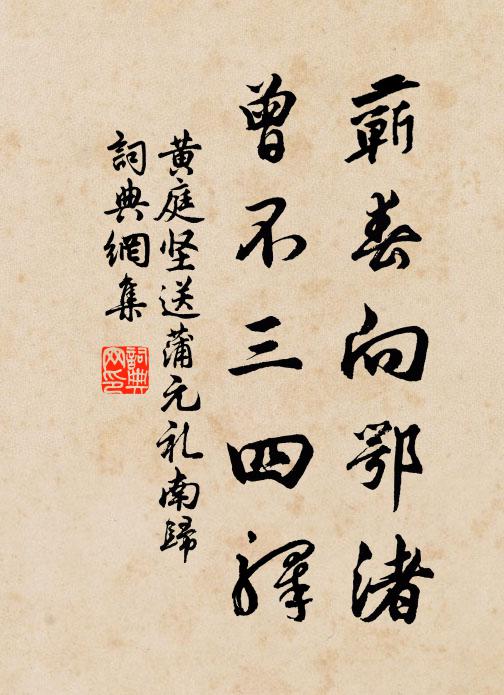 蘄春向鄂渚
曾不三四驛
黄庭坚送蒲元礼南歸
詞典網集
詞典网印